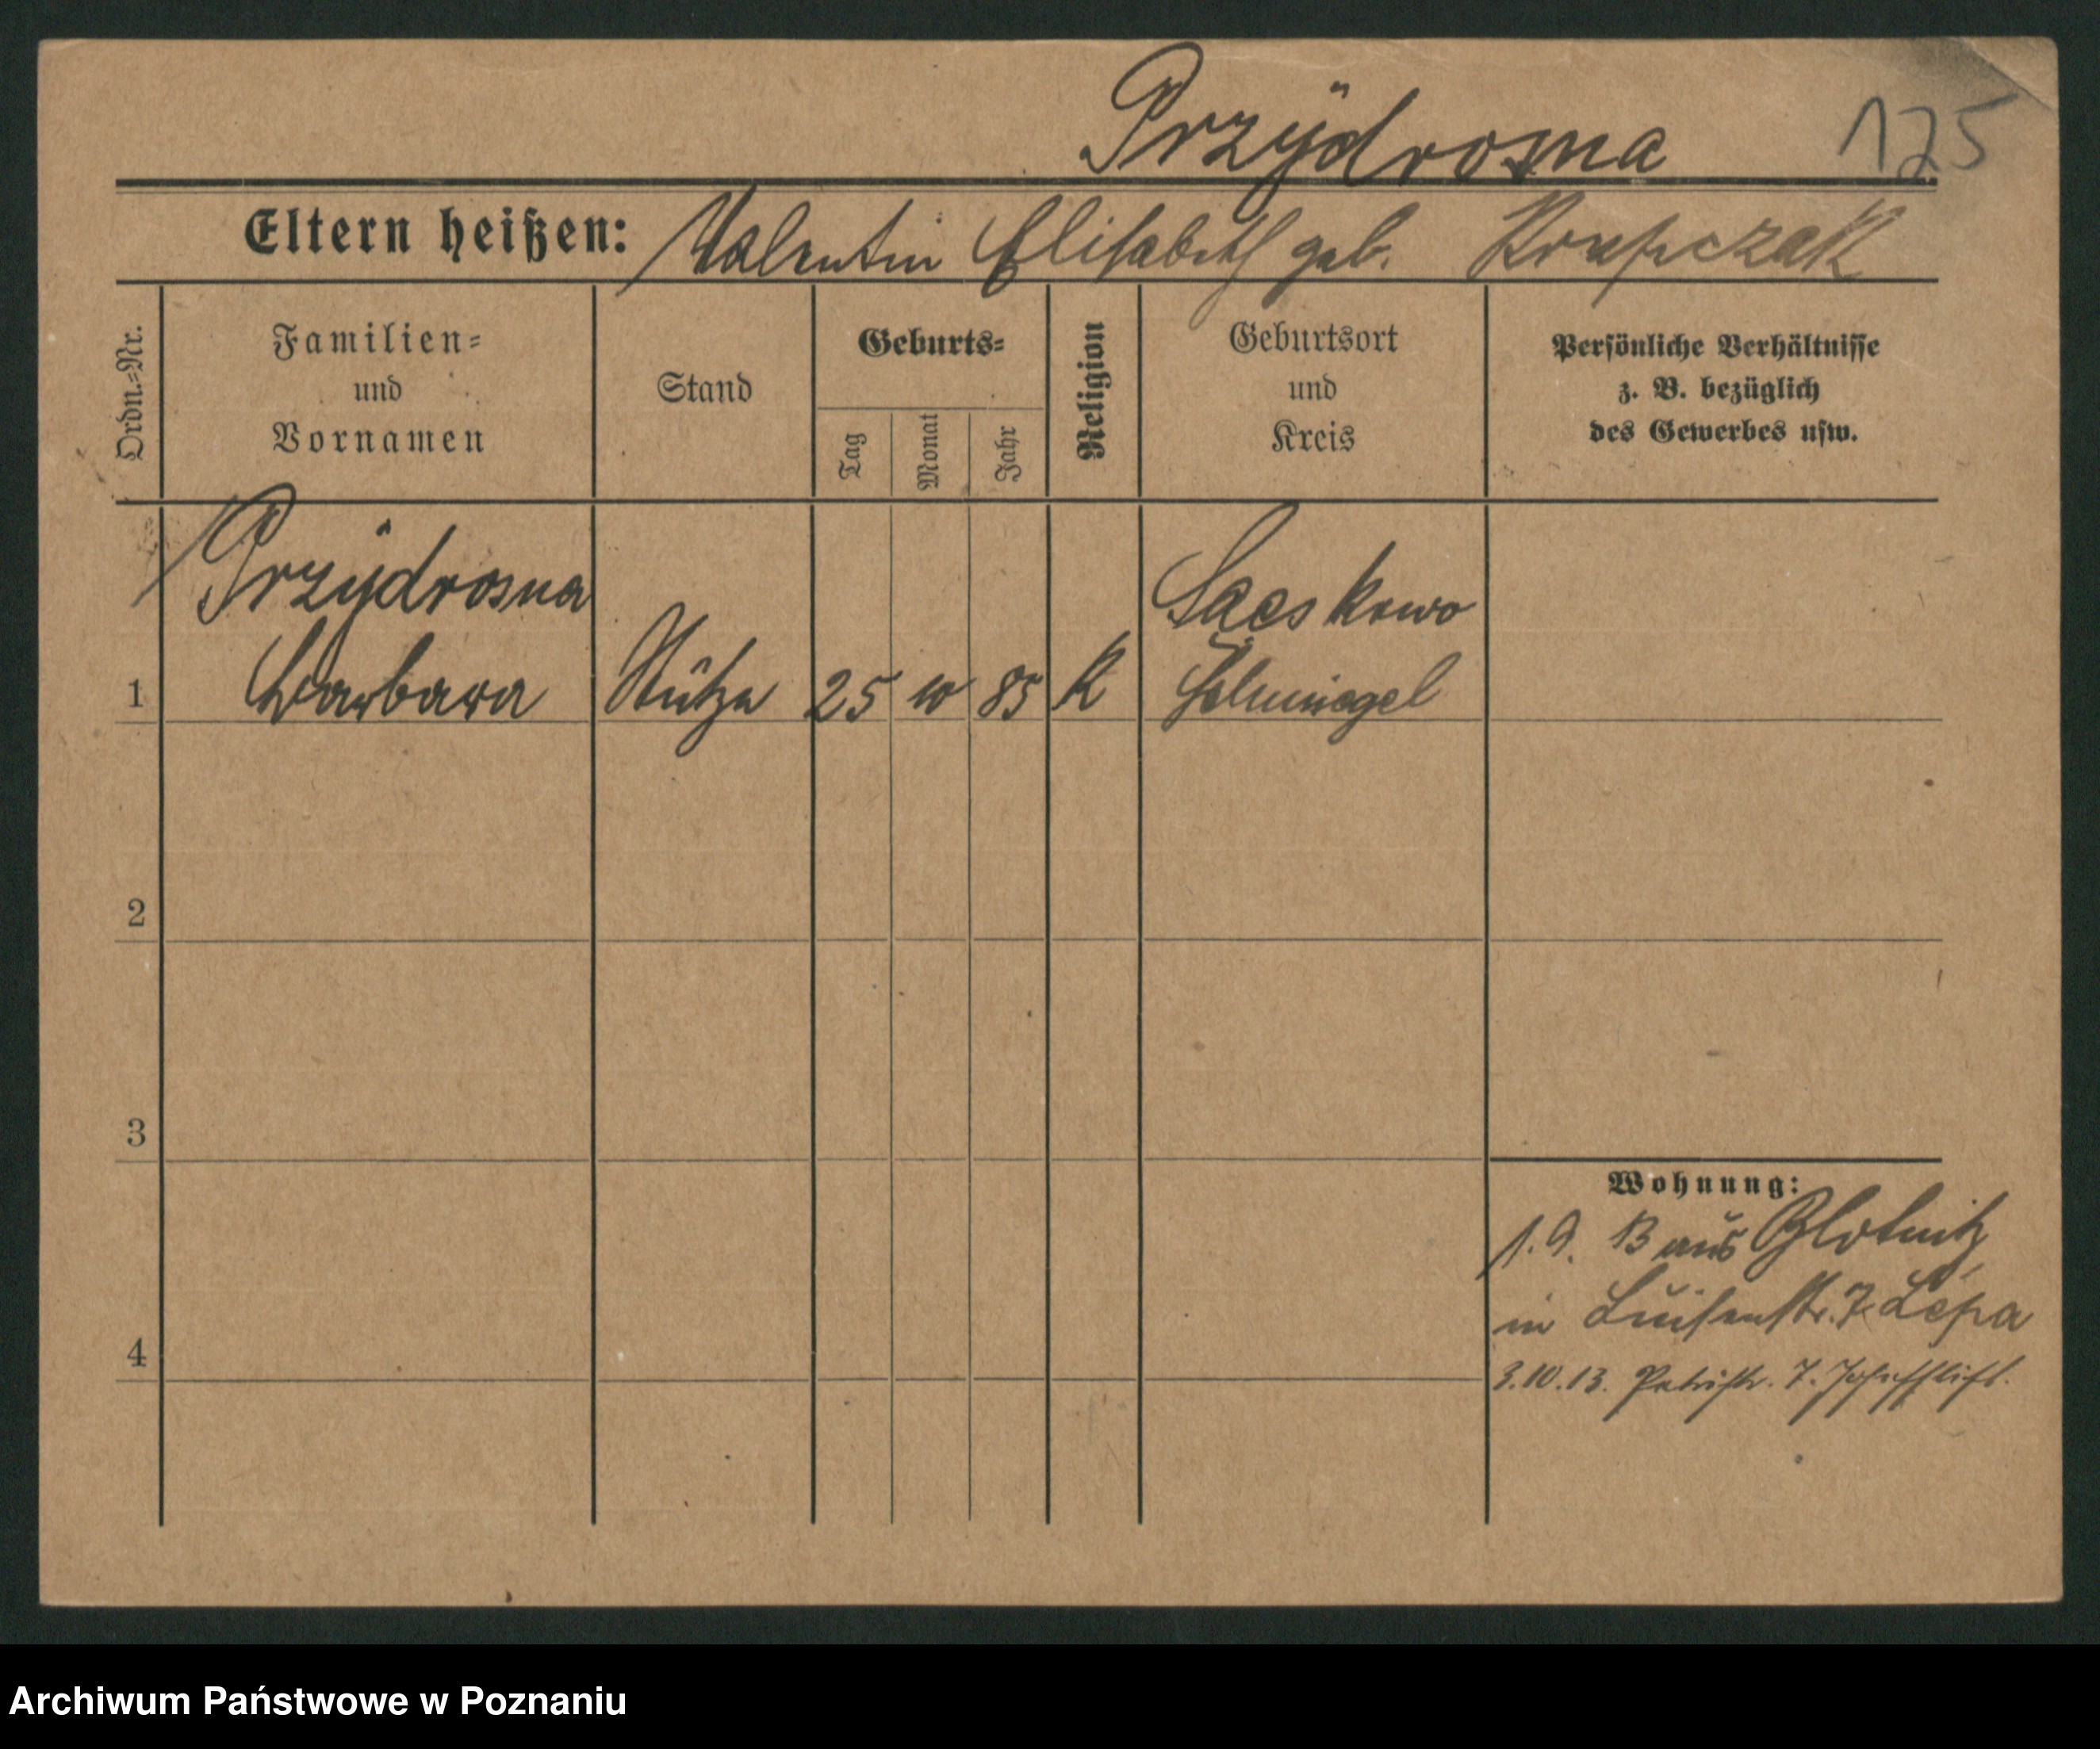 Przÿdrosna 125
Eltern heißen: Valentin Elisabeth geb. Krupczak
Ordn.=Nr.
Familien=
und
Vornamen
Stand
Geburts=
Tag
Monat
Jahr
Religion
Geburtsort
und
Kreis
Persönliche Verhältnisse
z. B. bezüglich
des Gewerbes usw.
Przÿdrosna Sacskowo
1 Barbara Stütze 25 10 85 K Schmiegel
2
3
Wohnung:
1.9. 13 aus Glotnitz
in Luisenstr. 7 Lepa
4
3.10.13. Petristr. 7.
Archiwum Państwowe w Poznaniu